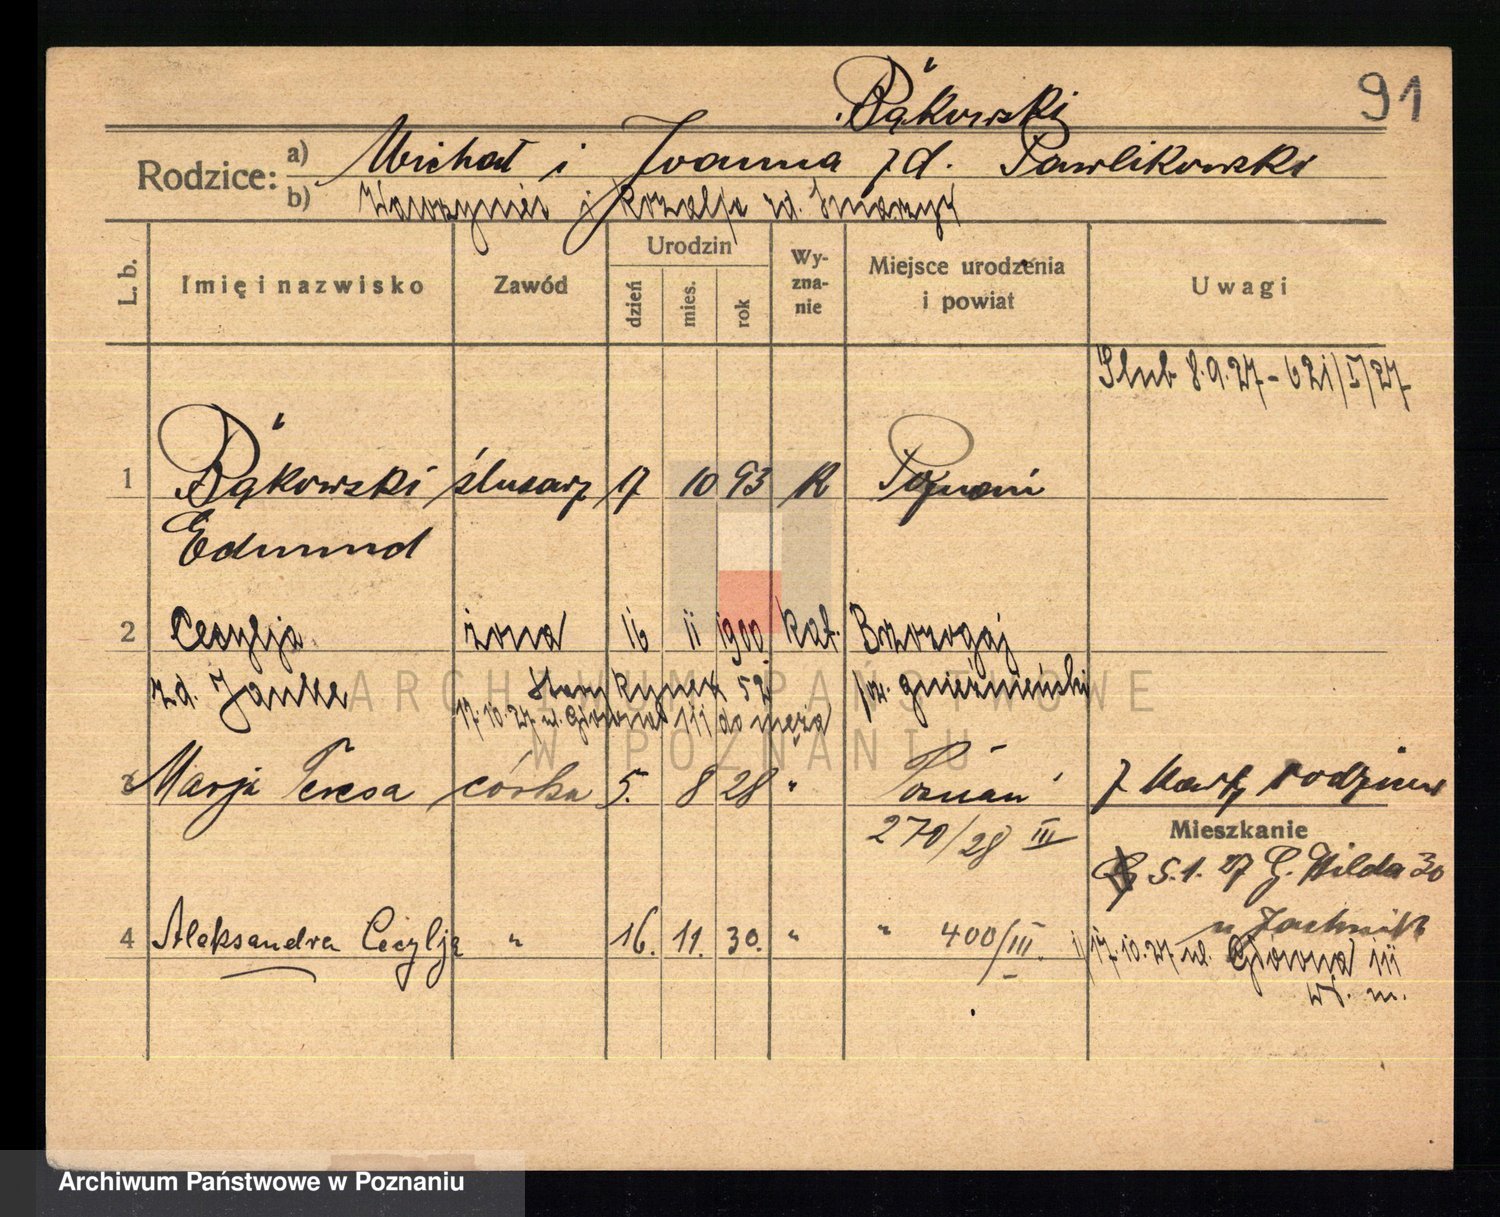 91
Bąkowski
Rodzice: a) Michał i Joanna zd. Pawlikowski
b) Wawrzyniec i Rozalja zd. Smarzyk
L. b.
Imię i nazwisko
Zawód
Urodzin
dzień
mies.
rok
Wy-
zna-
nie
Miejsce urodzenia
i powiat
Uwagi
Ślub 8.9.27 - 621/I/27
1 Bąkowski ślusarz 17 10 93 K Poznań
Edmund
2 Cecylja żona 16 11 1900 kat. Brzozogaj
zd. Janke Stary Rynek 59 pow. gnieźnieński
17.10.27 ul. Główna III do męża
3 Marja Teresa córka 5. 8 28 " Poznań z kart rodzinn
270/28 III
Mieszkanie
5.1.27 G. Wilda 30
u
4 Aleksandra Cecylja " 16. 11. 30. " " 400/III.
17.10.27 ul. Główna III
wł. m.
ARCHIWUM PAŃSTWOWE
W POZNANIU
Archiwum Państwowe w Poznaniu